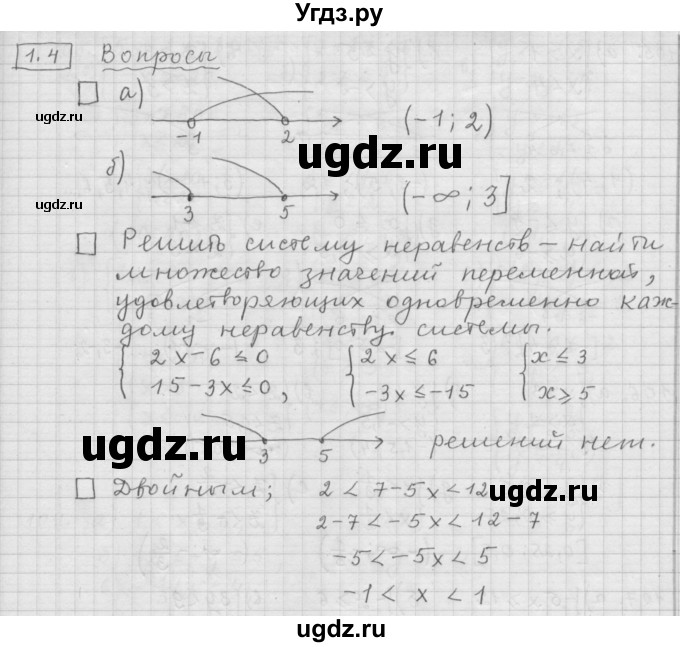 Угдз.ру
1.4 Вопросы
ugdz.ru ugdz.ru
□ а) -1 2 (-1; 2)
ugdz.ru
б) 3 5 (-∞; 3]
ugdz.ru ugdz.ru
□ Решить систему неравенств – найти
множество значений переменной,
удовлетворяющих одновременно каж-
дому неравенству системы.
{ 2x-6 ≤ 0 { 2x ≤ 6 { x ≤ 3
15-3x ≤ 0, -3x ≤ -15 x ≥ 5
ugdz.ru
3 5 решений нет.
□ Двойным; 2 < 7-5x < 12
ugdz.ru
2-7 < -5x < 12-7
-5 < -5x < 5
ugdz.ru ugdz.ru
-1 < x < 1
ugdz.ru